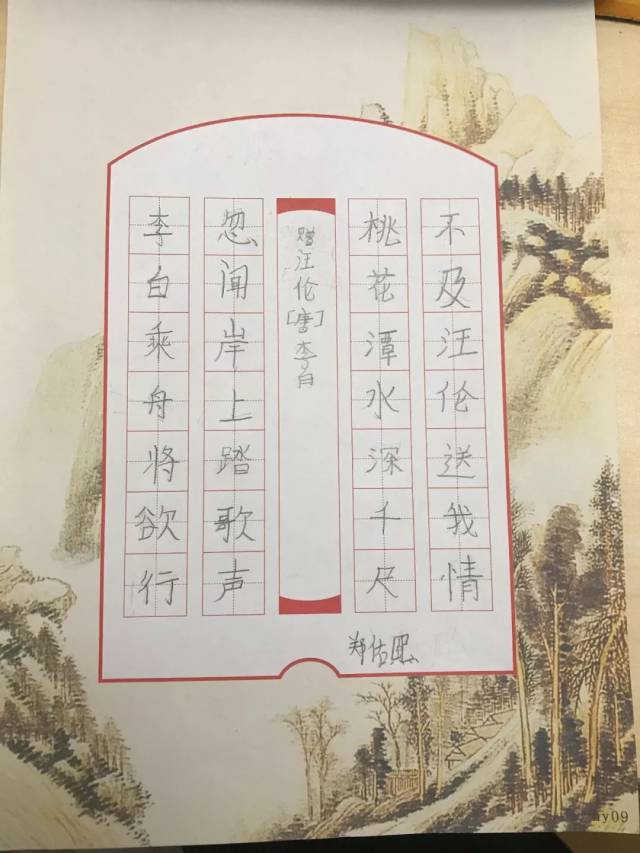 李白乘舟将欲行
忽闻岸上踏歌声
赠汪伦[唐]李白
桃花潭水深千尺
不及汪伦送我情
郑佑熙
hy09